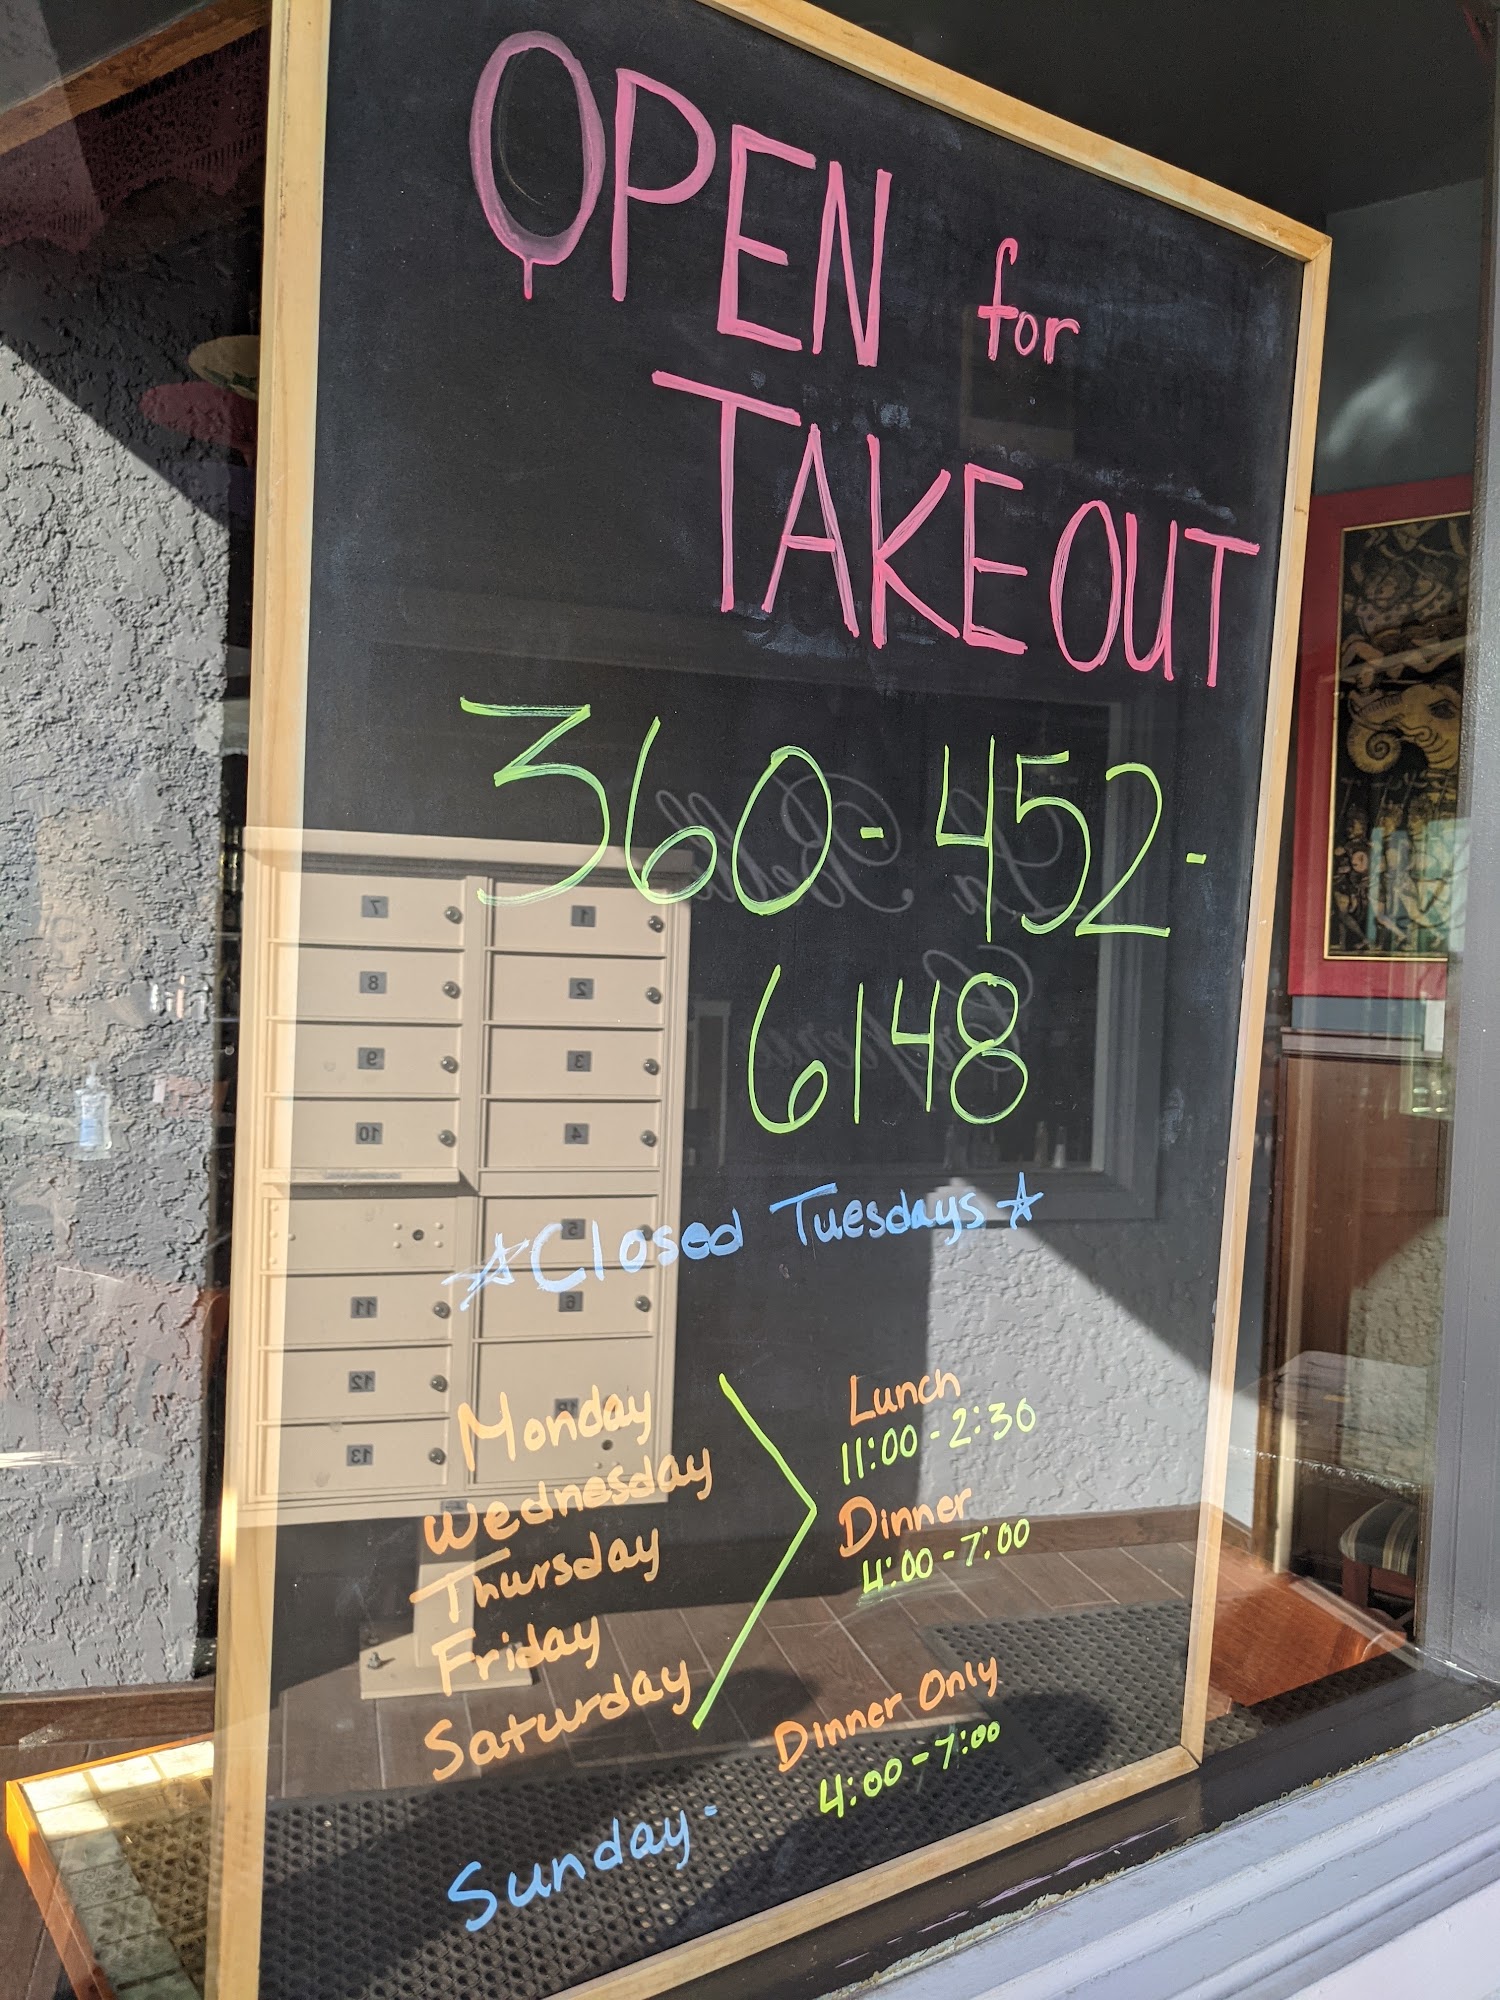 OPEN for
TAKEOUT
360-452-
6148
☆Closed Tuesdays☆
Monday
Wednesday
Thursday
Friday
Saturday
Lunch
11:00-2:30
Dinner
4:00-7:00
Sunday-
Dinner Only
4:00-7:00
7
1
8
2
9
3
10
4
5
11
6
12
13
La Bella